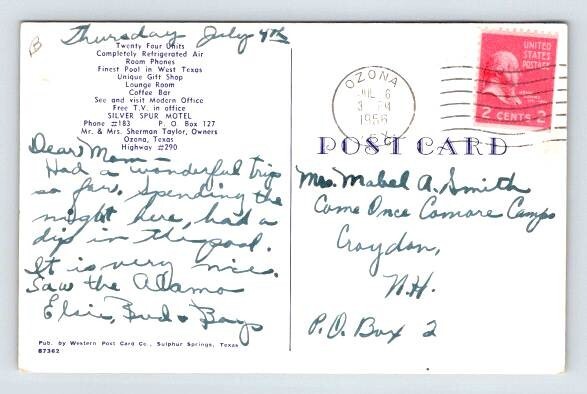 B
Thursday July 4th
Twenty Four Units
Completely Refrigerated Air
Room Phones
Finest Pool in West Texas
Unique Gift Shop
Lounge Room
Coffee Bar
See and visit Modern Office
Free T.V. in office
SILVER SPUR MOTEL
Phone #183 P. O. Box 127
Mr. & Mrs. Sherman Taylor, Owners
Ozona, Texas
Highway #290
Dear Mom -
Had a wonderful trip
so far. Spending the
night here, had a
dip in the pool.
It is very nice.
Saw the Alamo
Elsie, Bud & Boys
Pub. by Western Post Card Co., Sulphur Springs, Texas
87362
OZONA
JUL 6
3 PM
1956
TEX.
UNITED
STATES
POSTAGE
2 CENTS 2
POST CARD
Mrs. Mabel A. Smith
Come Once Comore Camps
Croydon,
N.H.
P.O. Box 2